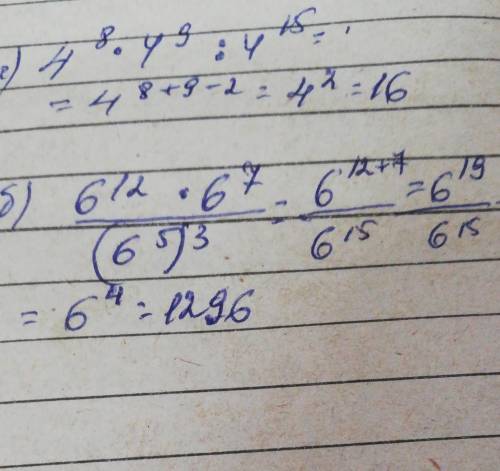 а) 4⁸ · 4⁹ : 4¹⁵ =
= 4⁸⁺⁹⁻² = 4² = 16
б) 6¹² · 6⁷ / (6⁵)³ = 6¹²⁺⁷ / 6¹⁵ = 6¹⁹ / 6¹⁵
= 6⁴ = 1296